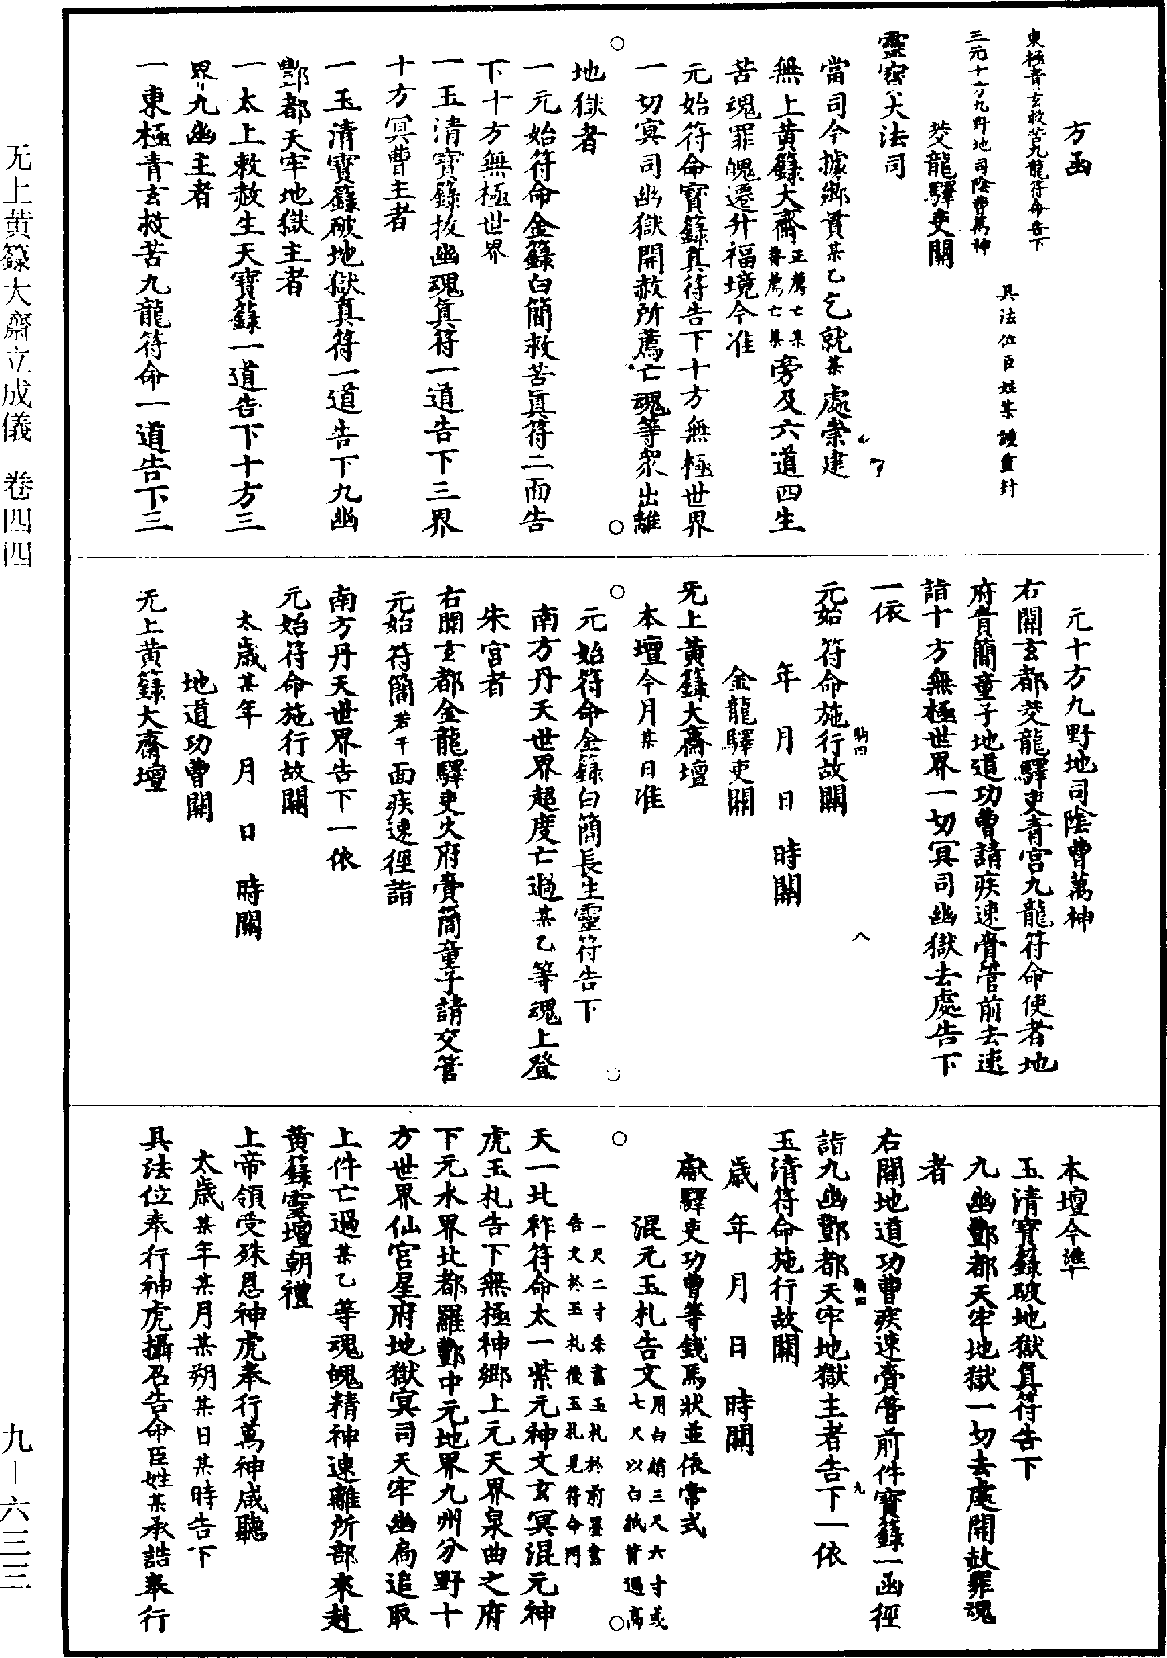 方函
東極青玄救苦九龍符命告下
三元十方九野地司陰曹萬神
具法位臣姓某謹重封
茭龍驛吏關
靈寶大法司
當司今據鄉貫某乙乞就某處崇建
無上黃籙大齋正薦亡某專薦亡某旁及六道四生
苦魂罪魄遷升福境今准
元始符命寶籙真符告下十方無極世界
一切冥司幽獄開赦所薦亡魂等眾出離
地獄者
一元始符命金籙白簡救苦真符二面告
下十方無極世界
一玉清寶籙拔幽魂真符一道告下三界
十方冥曹主者
一玉清寶籙破地獄真符一道告下九幽
酆都天牢地獄主者
一太上敕赦生天寶籙一道告下十方三
界九幽主者
一東極青玄救苦九龍符命一道告下三
元十方九野地司陰曹萬神
右關玄都茭龍驛吏青宮九龍符命使者地
府賫簡童子地道功曹請疾速賫管前去速
詣十方無極世界一切冥司幽獄去處告下
一依
元始符命施行故關
年 月 日 時關
金龍驛吏關
无上黃籙大齋壇
本壇今月某日准
元始符命金籙白簡長生靈符告下
南方丹天世界超度亡過某乙等魂上登
朱宮者
右關玄都金龍驛吏火府賫簡童子請交管
元始符簡若干面疾速徑詣
南方丹天世界告下一依
元始符命施行故關
太歲某年 月 日 時關
地道功曹關
无上黃籙大齋壇
本壇今準
玉清寶籙破地獄真符告下
九幽酆都天牢地獄一切去處開赦罪魂
者
右關地道功曹疾速賫管前件寶籙一函徑
詣九幽酆都天牢地獄主者告下一依
玉清符命施行故關
歲 年 月 日 時關
獻驛吏功曹等錢馬狀並依常式
混元玉札告文用白絹三尺六寸或七尺以白紙背過高
一尺二寸朱書玉札於前墨書告文於玉札後玉札見符命門
天一北祚符命太一紫元神文玄冥混元神
虎玉札告下無極神鄉上元天界泉曲之府
下元水界北都羅酆中元地界九州分野十
方世界仙宮星府地獄冥司天牢幽扃追取
上件亡過某乙等魂魄精神速離所部來赴
黃籙靈壇朝禮
上帝領受殊恩神虎奉行萬神咸聽
太歲某年某月某朔某日某時告下
具法位奉行神虎攝召告命臣姓某承誥奉行
无上黄籙大齋立成儀 卷四四
九—六三三